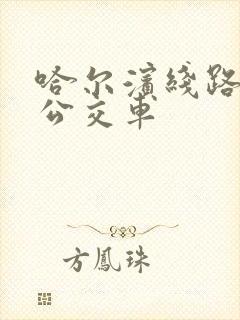 哈尔滨綫路
公交车
方鳳珠